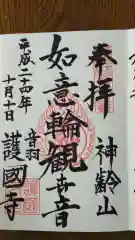 奉拝
神齢山
如意輪観世音
音羽
護國寺
平成二十四年
十月十日